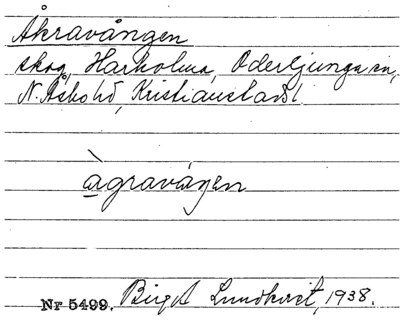 Åkravången
skog, Harholma, Oderljunga sn,
N. Åsbo hd, Kristianstads l
àgravåŋen
Nr 5499. Birgit Lundkvist, 1938.